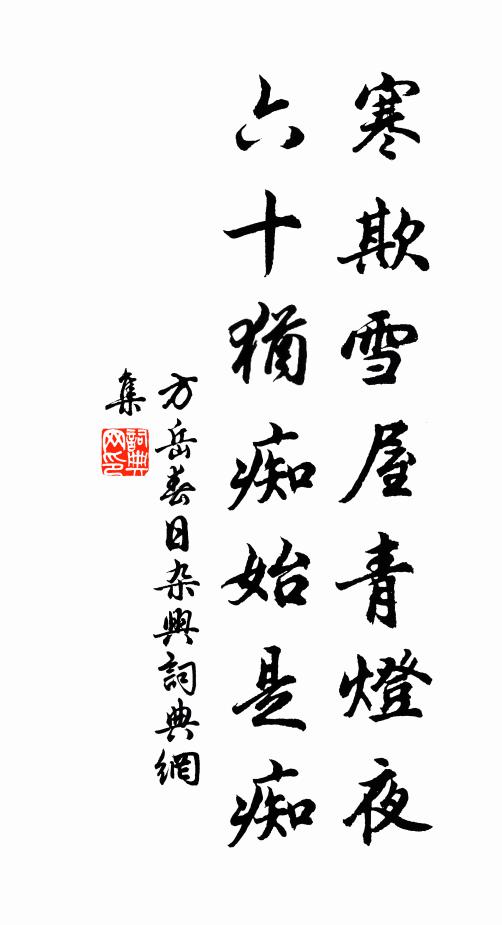 寒欺雪屋青燈夜
六十猶痴始是痴
方岳春日杂興詞典網
集
詞典
网印